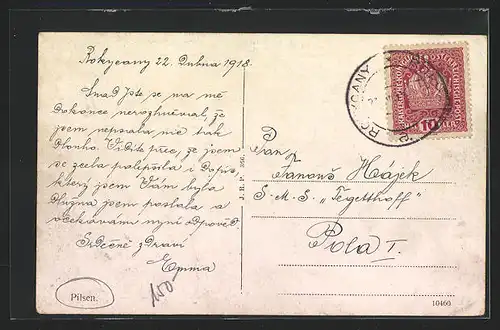 Rokycany 22. Dubna 1918.
Snad jste se na mě
Dokonce nerozhněval, že
jsem nepsala nic tak
Dlouho. Vidíte přce, že jsem
se zcela polepšila i Dopis,
který jsem Vám byla
Dlužna jsem poslala a
očekávám nyní odpověď.
Srdečně zdraví
Emma
Pilsen.
150
J. H. P. 566.
ROKYCANY
10
Pan
Janouš Hájek
S.M.S. „Tegetthoff"
Pola I.
10466